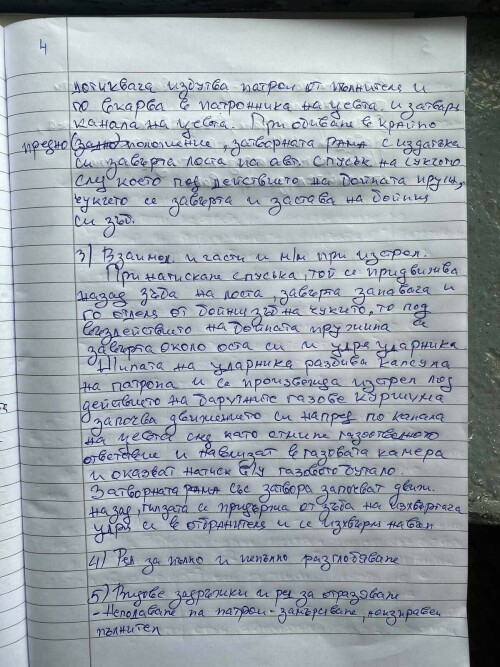 4
потиквача избутва патрон от пълнителя и
го вкарва в патронника на цевта и затваря
канала на цевта. При отиване в крайно
предно положение, затворната рама с издатъка
си завърта лоста на авт. спусък на чукчето
след което под действието на бойната пруж.
чукчето се завърта и застава на бойния
си зъб.
3) Взаимод. и части и м/м при изстрел.
При натискане спусъка, той се придвижва
назад зъба на лоста, завърта запъвача и
го отделя от бойния зъб на чукчето, то под
въздействието на бойната пружина се
завърта около оста си и удря ударника
Шипата на ударника разбива капсула
на патрона и се произвежда изстрел под
действието на барутните газове куршума
започва движението си напред по канала
на цевта след като отмине газоотводното
отверстие и навлизат в газовата камера
и оказват натиск в/у газовото бутало.
Затворната рама със затвора започват движ.
назад, гилзата се придържа от зъба на изхвъргача
удря се в отбранителя и се изхвърля навън
4) Ред за пълно и непълно разглобяване
5) Видове задръжки и ред за отразяване
- Неподаване на патрон - замърсяване, неизправен
пълнител